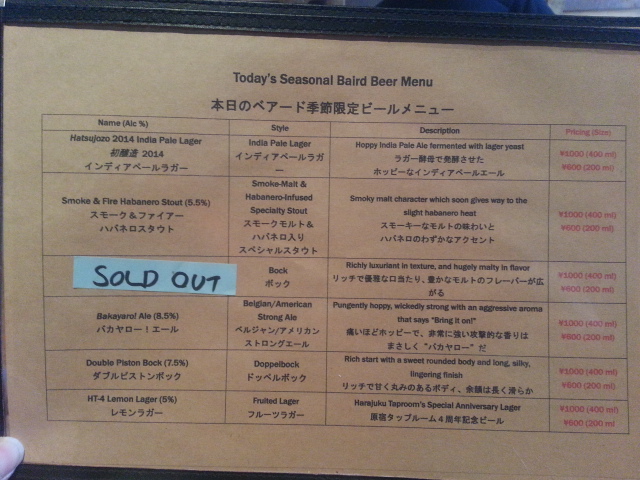 Today's Seasonal Baird Beer Menu
本日のベアード季節限定ビールメニュー
Name (Alc %)
Style
Description
Pricing (Size)
Hatsujozo 2014 India Pale Lager
初醸造 2014
インディアペールラガー
India Pale Lager
インディアペールラガ
ー
Hoppy India Pale Ale fermented with lager yeast
ラガー酵母で発酵させた
ホッピーなインディアペールエール
¥1000 (400 ml)
¥600 (200 ml)
Smoke & Fire Habanero Stout (5.5%)
スモーク＆ファイアー
ハバネロスタウト
Smoke-Malt &
Habanero-Infused
Specialty Stout
スモークモルト＆
ハバネロ入り
スペシャルスタウト
Smoky malt character which soon gives way to the
slight habanero heat
スモーキーなモルトの味わいと
ハバネロのわずかなアクセント
¥1000 (400 ml)
¥600 (200 ml)
SOLD OUT
Bock
ボック
Richly luxuriant in texture, and hugely malty in flavor
リッチで優雅な口当たり、豊かなモルトのフレーバーが広
がる
¥1000 (400 ml)
¥600 (200 ml)
Bakayaro! Ale (8.5%)
バカヤロー！エール
Belgian/American
Strong Ale
ベルジャン/アメリカン
ストロングエール
Pungently hoppy, wickedly strong with an aggressive aroma
that says "Bring it on!"
痛いほどホッピーで、非常に強い攻撃的な香りは
まさしく“バカヤロー”だ
¥1000 (400 ml)
¥600 (200 ml)
Double Piston Bock (7.5%)
ダブルピストンボック
Doppelbock
ドッペルボック
Rich start with a sweet rounded body and long, silky,
lingering finish
リッチで甘く丸みのあるボディ、余韻は長く滑らか
¥1000 (400 ml)
¥600 (200 ml)
HT-4 Lemon Lager (5%)
レモンラガー
Fruited Lager
フルーツラガー
Harajuku Taproom's Special Anniversary Lager
原宿タップルーム４周年記念ビール
¥1000 (400 ml)
¥600 (200 ml)